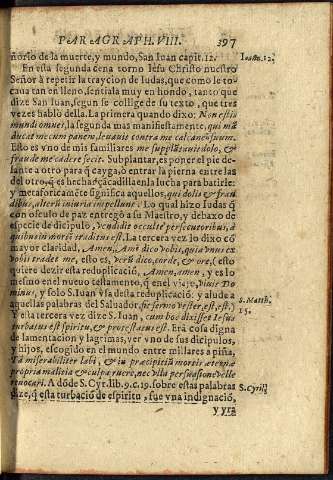 PARAGRAPH. VIII. 397
ñorio de la muerte, y mundo, San Iuan capit. 12.
Ioan. 12.
En esta segunda cena torno Iesu Christo nuestro
Señor à repetir la traycion de Iudas, que como le to-
caua tan en lleno, sentiala muy en hondo, tanto que
dize San Iuan, segun se collige de su texto, que tres
vezes habló della. La primera quando dixo: Non estis
mundi omnes, la segunda mas manifiestamente, qui mã
ducat mecum panem, leuauit contra me calcaneũ suum.
Esto es vno de mis familiares me supplátauit dolo, &
fraude me cadere fecit. Subplantar, es poner el pie de-
lante a otro para q̃ cayga, ò entrar la pierna entre las
del otro, q̃ es hechar çãcadilla en la lucha para batirle:
y metaforicamẽte significa aquellos, qui dolis & frau
dibus, alteri iniuriã impellunt. Lo qual hizo Iudas q̃
con osculo de paz entregò a su Maestro, y debaxo de
especie de dicipulo, vendidit occultè persecutoribus, à
quibus in mortẽ traditus est. La tercera vez lo dixo cõ
mayor claridad, Amen, Amẽ dico vobis, quia vnus ex
vobis tradet me, esto es, verũ dico, corde, & ore, q̃ esto
quiere dezir esta reduplicació, Amen, amen, y es lo
mesmo en el nueuo testamento, q̃ en el viejo, viuit Do
minus, y solo S. Iuan vsa desta reduplicació: y alude a
aquellas palabras del Saluador, sit sermo vester, est, est,
S. Matth.
Y esta tercera vez dize S. Iuan, cum hoc dixisset Iesus
5.
turbatus est spiritu, & protestatus est. Erà cosa digna
de lamentacion y lagrimas, ver vno de sus dicipulos,
y hijos, escogido en el mundo entre millares a piña,
Tã miserabiliter labi, & in præcipitiũ mortis æternæ
propria malitia & culpa ruere, nec vlla persuasione velle
reuocari. A dõde S. Cyr. lib. 9. c. 19. sobre estas palabras
S. Cyril.
dize, q̃ esta turbació de espiritu, fue vna indignació,
y yra